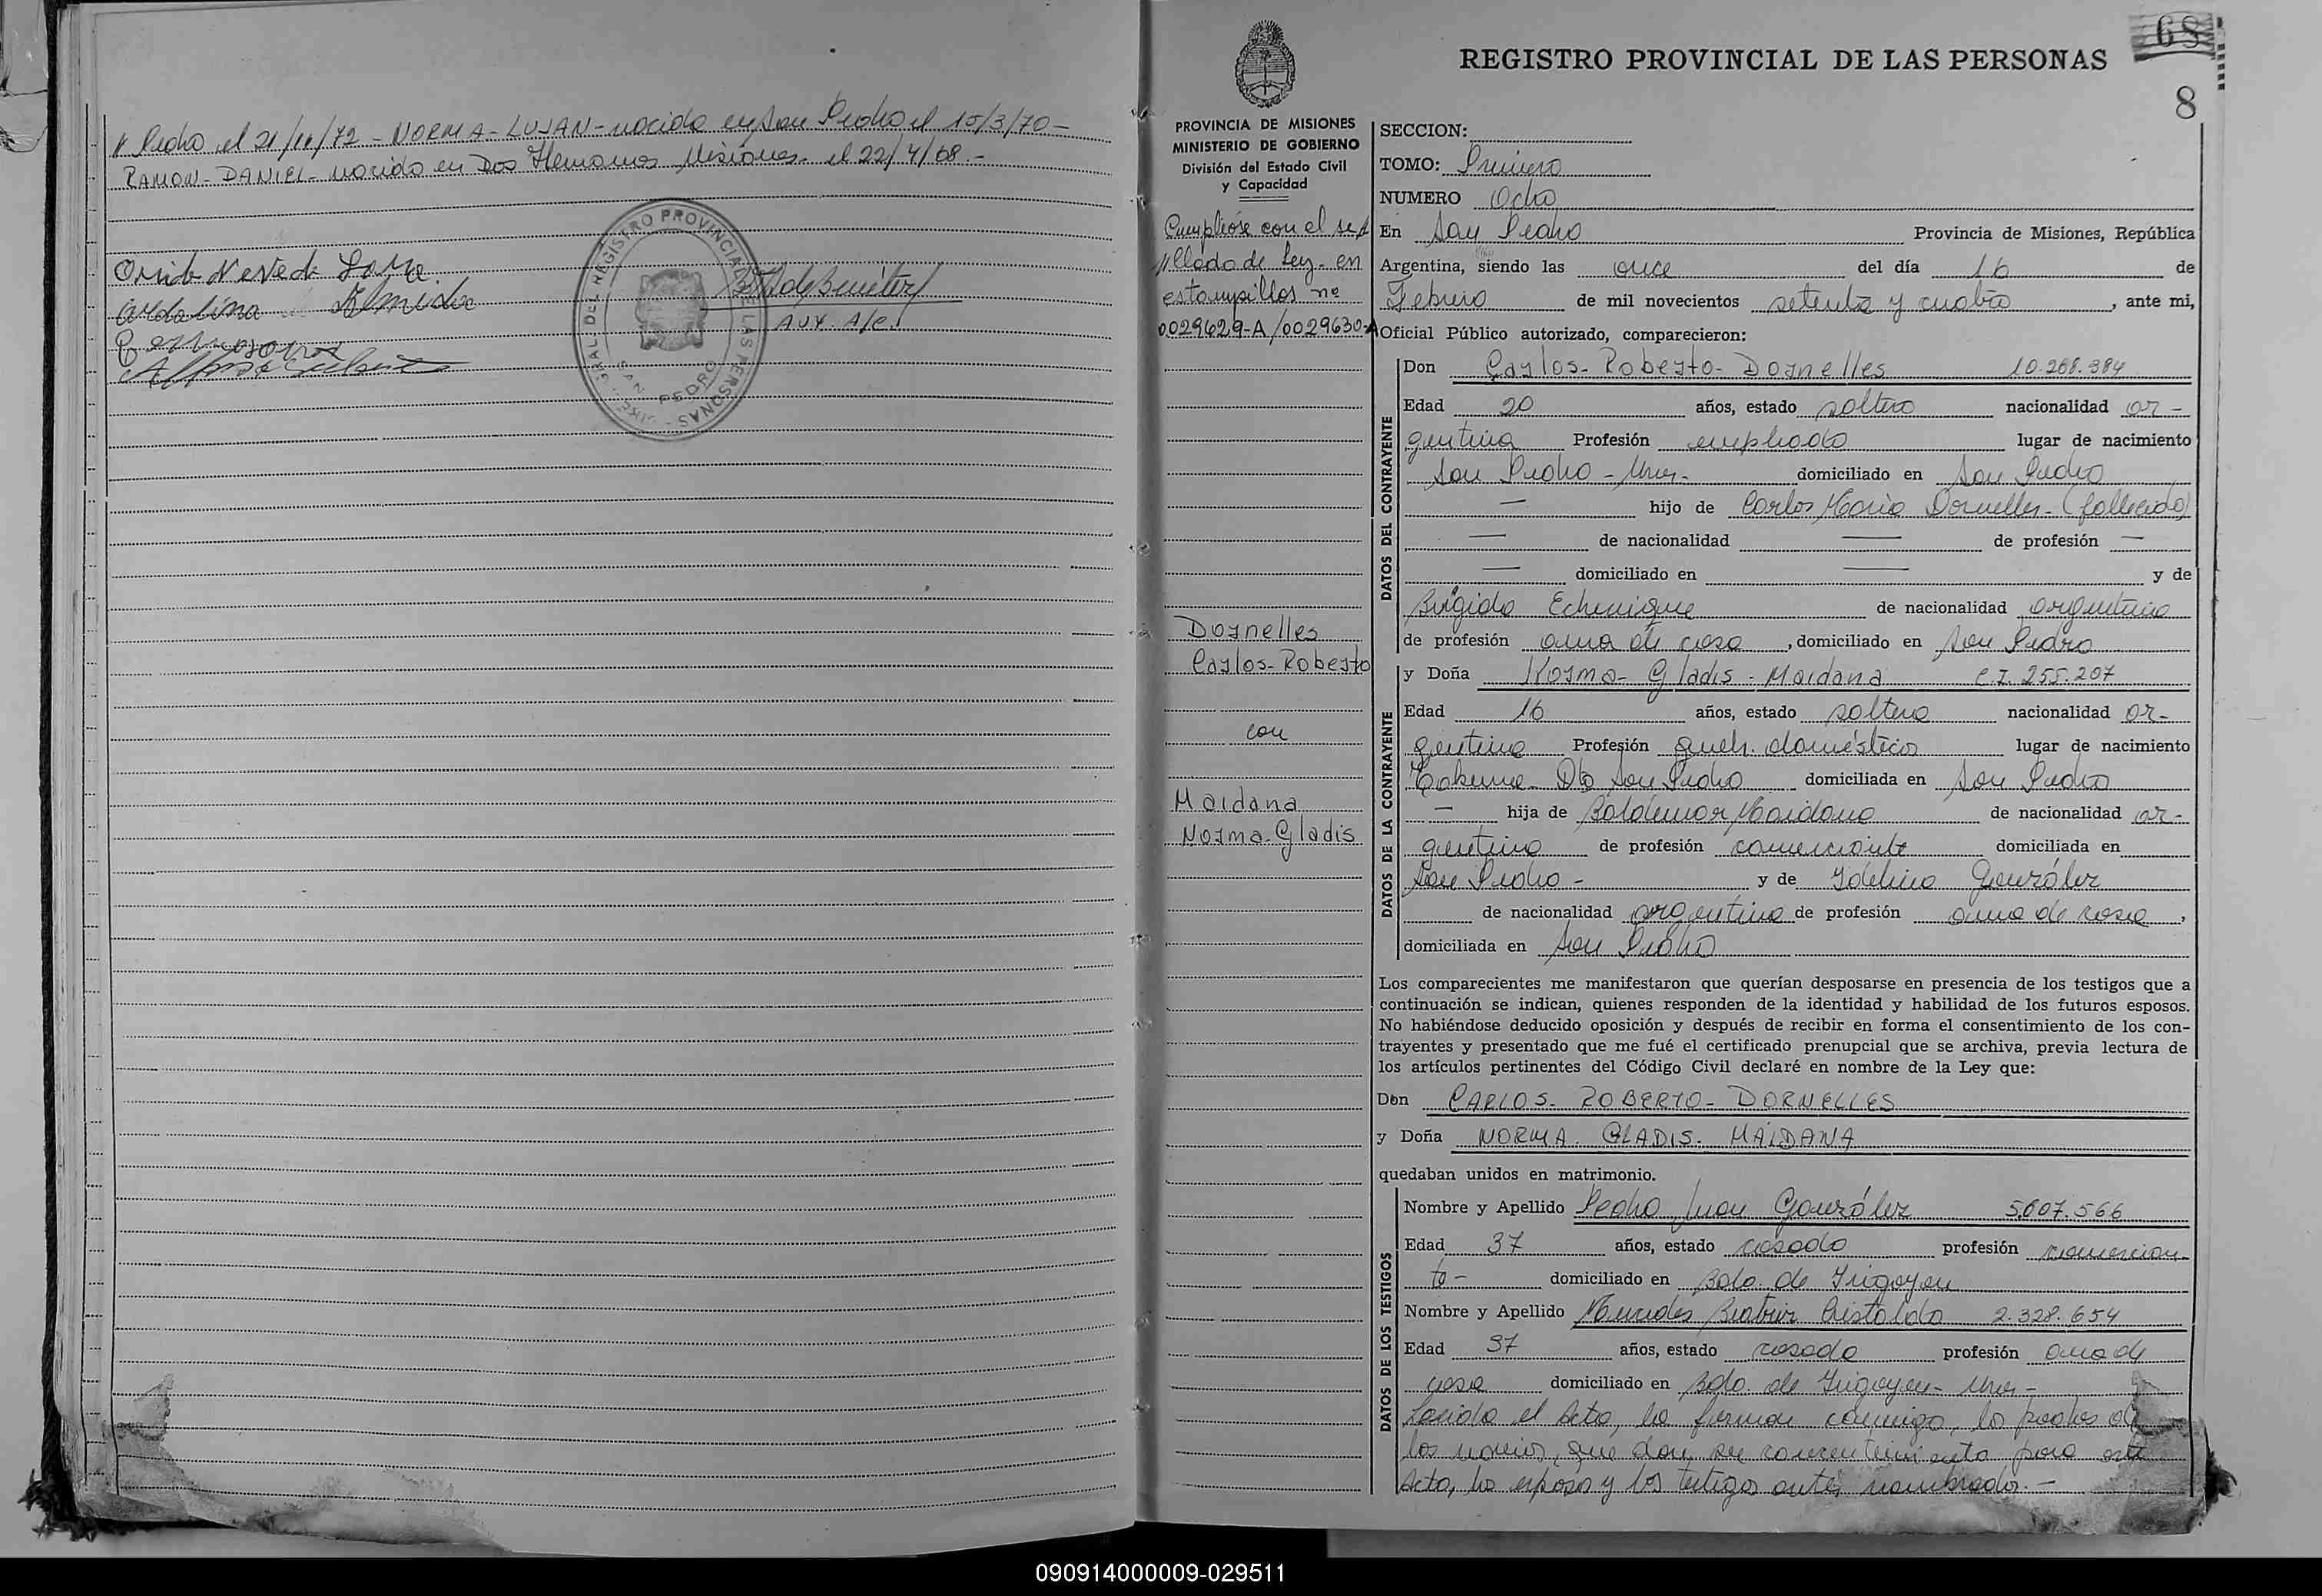 " Pedro el 21/11/72 - NORMA - LUJAN - nacida en San Pedro el 15/3/70 -
RAMON - DANIEL - nacido en Dos Hermanas Misiones - el 22/4/68. -
AUX. A/C.
REGISTRO PROVINCIAL DE LAS PERSONAS
SAN PEDRO
REGISTRO PROVINCIAL DE LAS PERSONAS
68
8
PROVINCIA DE MISIONES
MINISTERIO DE GOBIERNO
División del Estado Civil
y Capacidad
Cumplióse con el se//
//llado de Ley - en
estampillas nº
0029629-A/0029630-A
Dornelles
Carlos-Roberto
con
Maidana
Norma-Gladis
SECCION:
TOMO: Primero
NUMERO Ocho
En San Pedro Provincia de Misiones, República
Argentina, siendo las once del día 16 de
Febrero de mil novecientos setenta y cuatro, ante mi,
Oficial Público autorizado, comparecieron:
DATOS DEL CONTRAYENTE
Don Carlos - Roberto - Dornelles 10.268.384
Edad 20 años, estado soltero nacionalidad ar-
gentina Profesión empleado lugar de nacimiento
San Pedro - Mnes. domiciliado en San Pedro
— hijo de Carlos María Dornelles - (fallecido)
— de nacionalidad — de profesión —
— domiciliado en — y de
Brígida Echenique de nacionalidad argentina
de profesión ama de casa, domiciliado en San Pedro
DATOS DE LA CONTRAYENTE
y Doña Norma - Gladis - Maidana C.I. 255.207
Edad 16 años, estado soltera nacionalidad ar-
gentina Profesión queh. domésticos lugar de nacimiento
Dto San Pedro domiciliada en San Pedro
— hija de Baldemar Maidana de nacionalidad ar-
gentina de profesión comerciante domiciliada en
San Pedro - y de González
de nacionalidad argentina de profesión ama de casa,
domiciliada en San Pedro
Los comparecientes me manifestaron que querían desposarse en presencia de los testigos que a
continuación se indican, quienes responden de la identidad y habilidad de los futuros esposos.
No habiéndose deducido oposición y después de recibir en forma el consentimiento de los con-
trayentes y presentado que me fué el certificado prenupcial que se archiva, previa lectura de
los artículos pertinentes del Código Civil declaré en nombre de la Ley que:
Don CARLOS - ROBERTO - DORNELLES
y Doña NORMA - GLADIS - MAIDANA
quedaban unidos en matrimonio.
DATOS DE LOS TESTIGOS
Nombre y Apellido Pedro Juan González 5.007.566
Edad 37 años, estado casado profesión comercian-
te - domiciliado en Bdo. de Irigoyen
Nombre y Apellido Mercedes Beatriz Cristaldo 2.328.654
Edad 37 años, estado casada profesión ama de
casa domiciliado en Bdo. de Irigoyen - Mnes -
Leída el Acta, la firman conmigo, los padres de
los novios, que dan su consentimiento para este
Acto, los esposos y los testigos antes nombrados. -
090914000009-029511